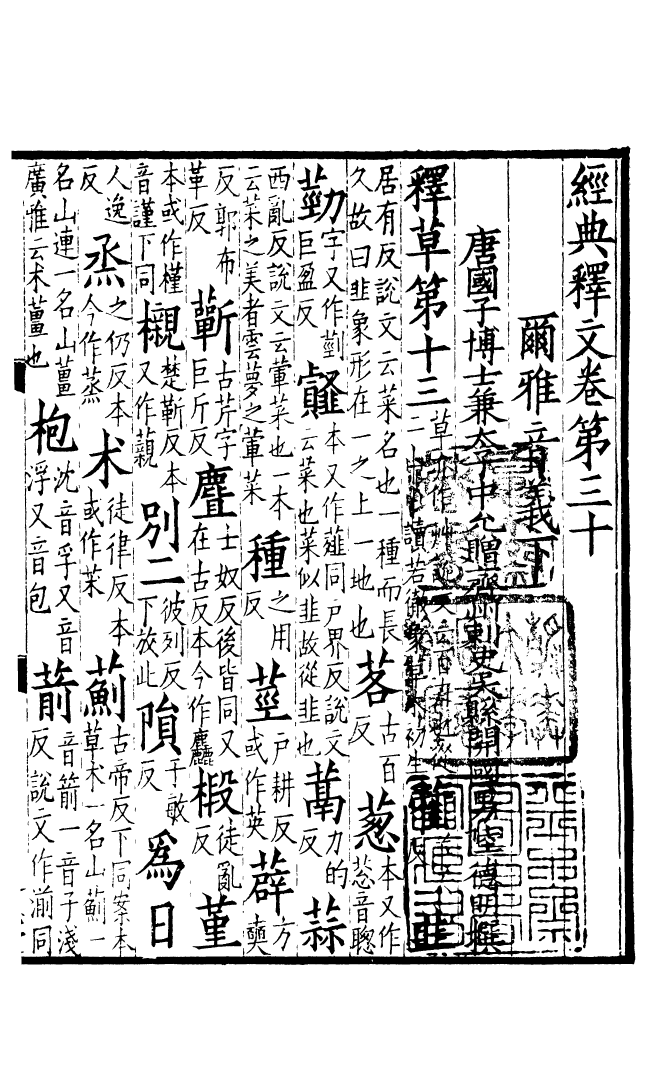 經典釋文卷第三十
爾雅音義下
唐國子博士兼太子中允贈齊州刺史吳縣開國男陸德明撰
釋草第十三 草亦作艸說文云百卉也從二屮屮讀若徹象草木初生 反 韭
居有反說文云菜名也一種而長久故曰韭象形在一之上一地也 茖 古百反 葱 本又作䓗音聰
葝 字又作𦵴巨盈反 䪥 本又作薤同戶界反說文云菜也菜似韭故從韭也 蒚 力的反 蒜
西亂反說文云葷菜也一本云菜之美者雲夢之葷菜 種 之用反 莖 戶耕反或作英 薜 方奭
反郭布革反 蘄 古芹字巨斤反 麆 士奴反後皆同又在古反本今作麤 椴 徒亂反 菫
本或作槿音謹下同 櫬 楚靳反本又作藽 別二 彼列反下放此 隕 于敏反 爲日
人逸反 烝 之仍反本今作蒸 术 徒律反本或作茉 薊 古帝反下同案本草术一名山薊一
名山連一名山薑廣雅云术薑也 枹 沈音孚又音浮又音包 葥 音箭一音子淺反說文作湔同